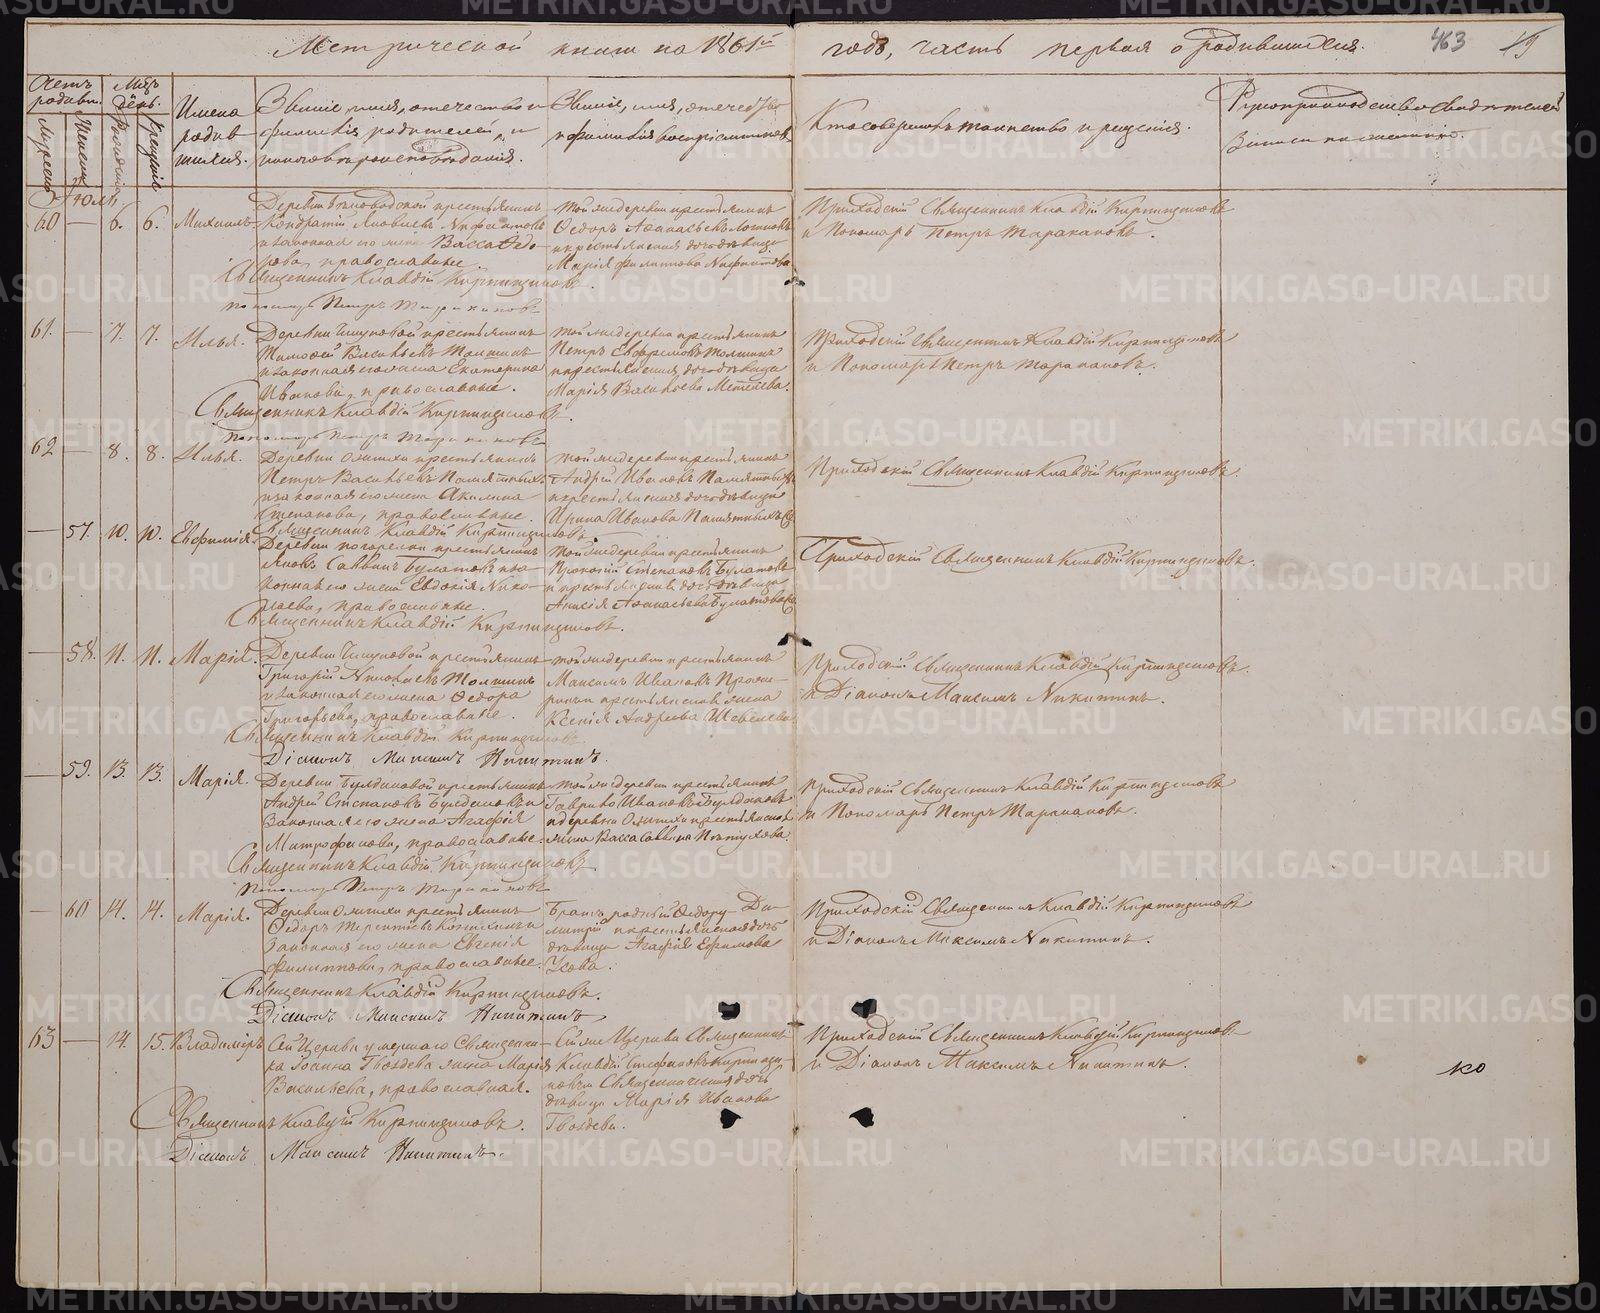 Метрической книги на 1861й годъ, часть первая о родившихся. 463 19
Счетъ родивш.
Мужеска
Женска
Мѣс. День.
Рожденія
Крещенія
Имена родив-
шихся.
Званіе, имя, отечество и
фамилія родителей, и
какого вѣроисповѣданія.
Званіе, имя, отечество
и фамилія воспріемниковъ
Кто совершалъ таинство крещенія.
Рукоприкладство свидѣтелей
записи по желанію.
Іюль
60 — 6. 6. Михаилъ
Деревни крестьянинъ
Кондратій Яковлевъ
и законная его жена Васса Ѳедо-
рова, православные
Той же деревни крестьянинъ
Ѳедоръ Аѳанасьевъ
и крестьянская дочь дѣвица
Марія Филиппова
Приходскій Священникъ Клавдій Кирпищиковъ
и Пономарь Петръ Таракановъ.
Священникъ Клавдій Кирпищиковъ.
Пономарь Петръ Таракановъ
61. — 7. 7. Илья.
Деревни крестьянинъ
Тимоѳей Васильевъ Толшинъ
и законная его жена Екатерина
Иванова, православные.
Той же деревни крестьянинъ
Петръ Евфремовъ Толшинъ
и крестьянская дочь дѣвица
Марія Васильева Метелева.
Приходскій Священникъ Клавдій Кирпищиковъ
и Пономарь Петръ Таракановъ.
Священникъ Клавдій Кирпищиковъ.
Пономарь Петръ Таракановъ
62 — 8. 8. Илья.
Деревни крестьянинъ
Петръ Васильевъ Памятныхъ
и законная его жена Акилина
Степанова, православные.
Той же деревни крестьянинъ
Андрей Ивановъ Памятныхъ
и крестьянская дочь дѣвица
Ирина Иванова Памятныхъ
Приходскій Священникъ Клавдій Кирпищиковъ.
Священникъ Клавдій Кирпищиковъ.
— 57. 10. 10. Евфимія.
Деревни крестьянинъ
Яковъ Саввинъ Булатовъ и за-
конная его жена Евдокія Нико-
лаева, православные.
Той же деревни крестьянинъ
Прокопій Степановъ Булатовъ
и крестьянская дочь дѣвица
Анисія Аѳанасьева Булатова
Приходскій Священникъ Клавдій Кирпищиковъ.
Священникъ Клавдій Кирпищиковъ.
— 58. 11. 11. Марія.
Деревни крестьянинъ
Григорій Яковлевъ Толшинъ
и законная его жена Ѳедора
Григорьева, православные.
Той же деревни крестьянинъ
Максимъ Ивановъ
и крестьянская жена
Ксенія Андреева Шевелева
Приходскій Священникъ Клавдій Кирпищиковъ
и Діаконъ Максимъ Никитинъ.
Священникъ Клавдій Кирпищиковъ
Діаконъ Максимъ Никитинъ.
— 59. 13. 13. Марія.
Деревни Булдаковой крестьянинъ
Андрей Степановъ Булдаковъ и
законная его жена Агафія
Митрофанова, православные.
Той же деревни крестьянинъ
Гаврило Ивановъ Булдаковъ
и деревни крестьянская
жена Васса Саввина Пѣтухова.
Приходскій Священникъ Клавдій Кирпищиковъ
и Пономарь Петръ Таракановъ.
Священникъ Клавдій Кирпищиковъ
Пономарь Петръ Таракановъ
— 60 14. 14. Марія.
Деревни крестьянинъ
Ѳедоръ Терентьевъ и
законная его жена Евгенія
Филиппова, православные.
Братъ родный Ѳедору Ди-
митрій и крестьянская дочь
дѣвица Агафія Ефимова
Усова.
Приходскій Священникъ Клавдій Кирпищиковъ
и Діаконъ Максимъ Никитинъ.
Священникъ Клавдій Кирпищиковъ.
Діаконъ Максимъ Никитинъ
63 — 14. 15. Владиміръ
Сей Церкви умершаго Священни-
ка Іоанна Гвоздева жена Марія
Васильева, православная.
Сей же Церкви Священникъ
Клавдій Стефановъ Кирпищи-
ковъ и Священническая дочь
дѣвица Марія Иванова
Гвоздева.
Приходскій Священникъ Клавдій Кирпищиковъ
и Діаконъ Максимъ Никитинъ.
Священникъ Клавдій Кирпищиковъ.
Діаконъ Максимъ Никитинъ.
ко
METRIKI.GASO-URAL.RU